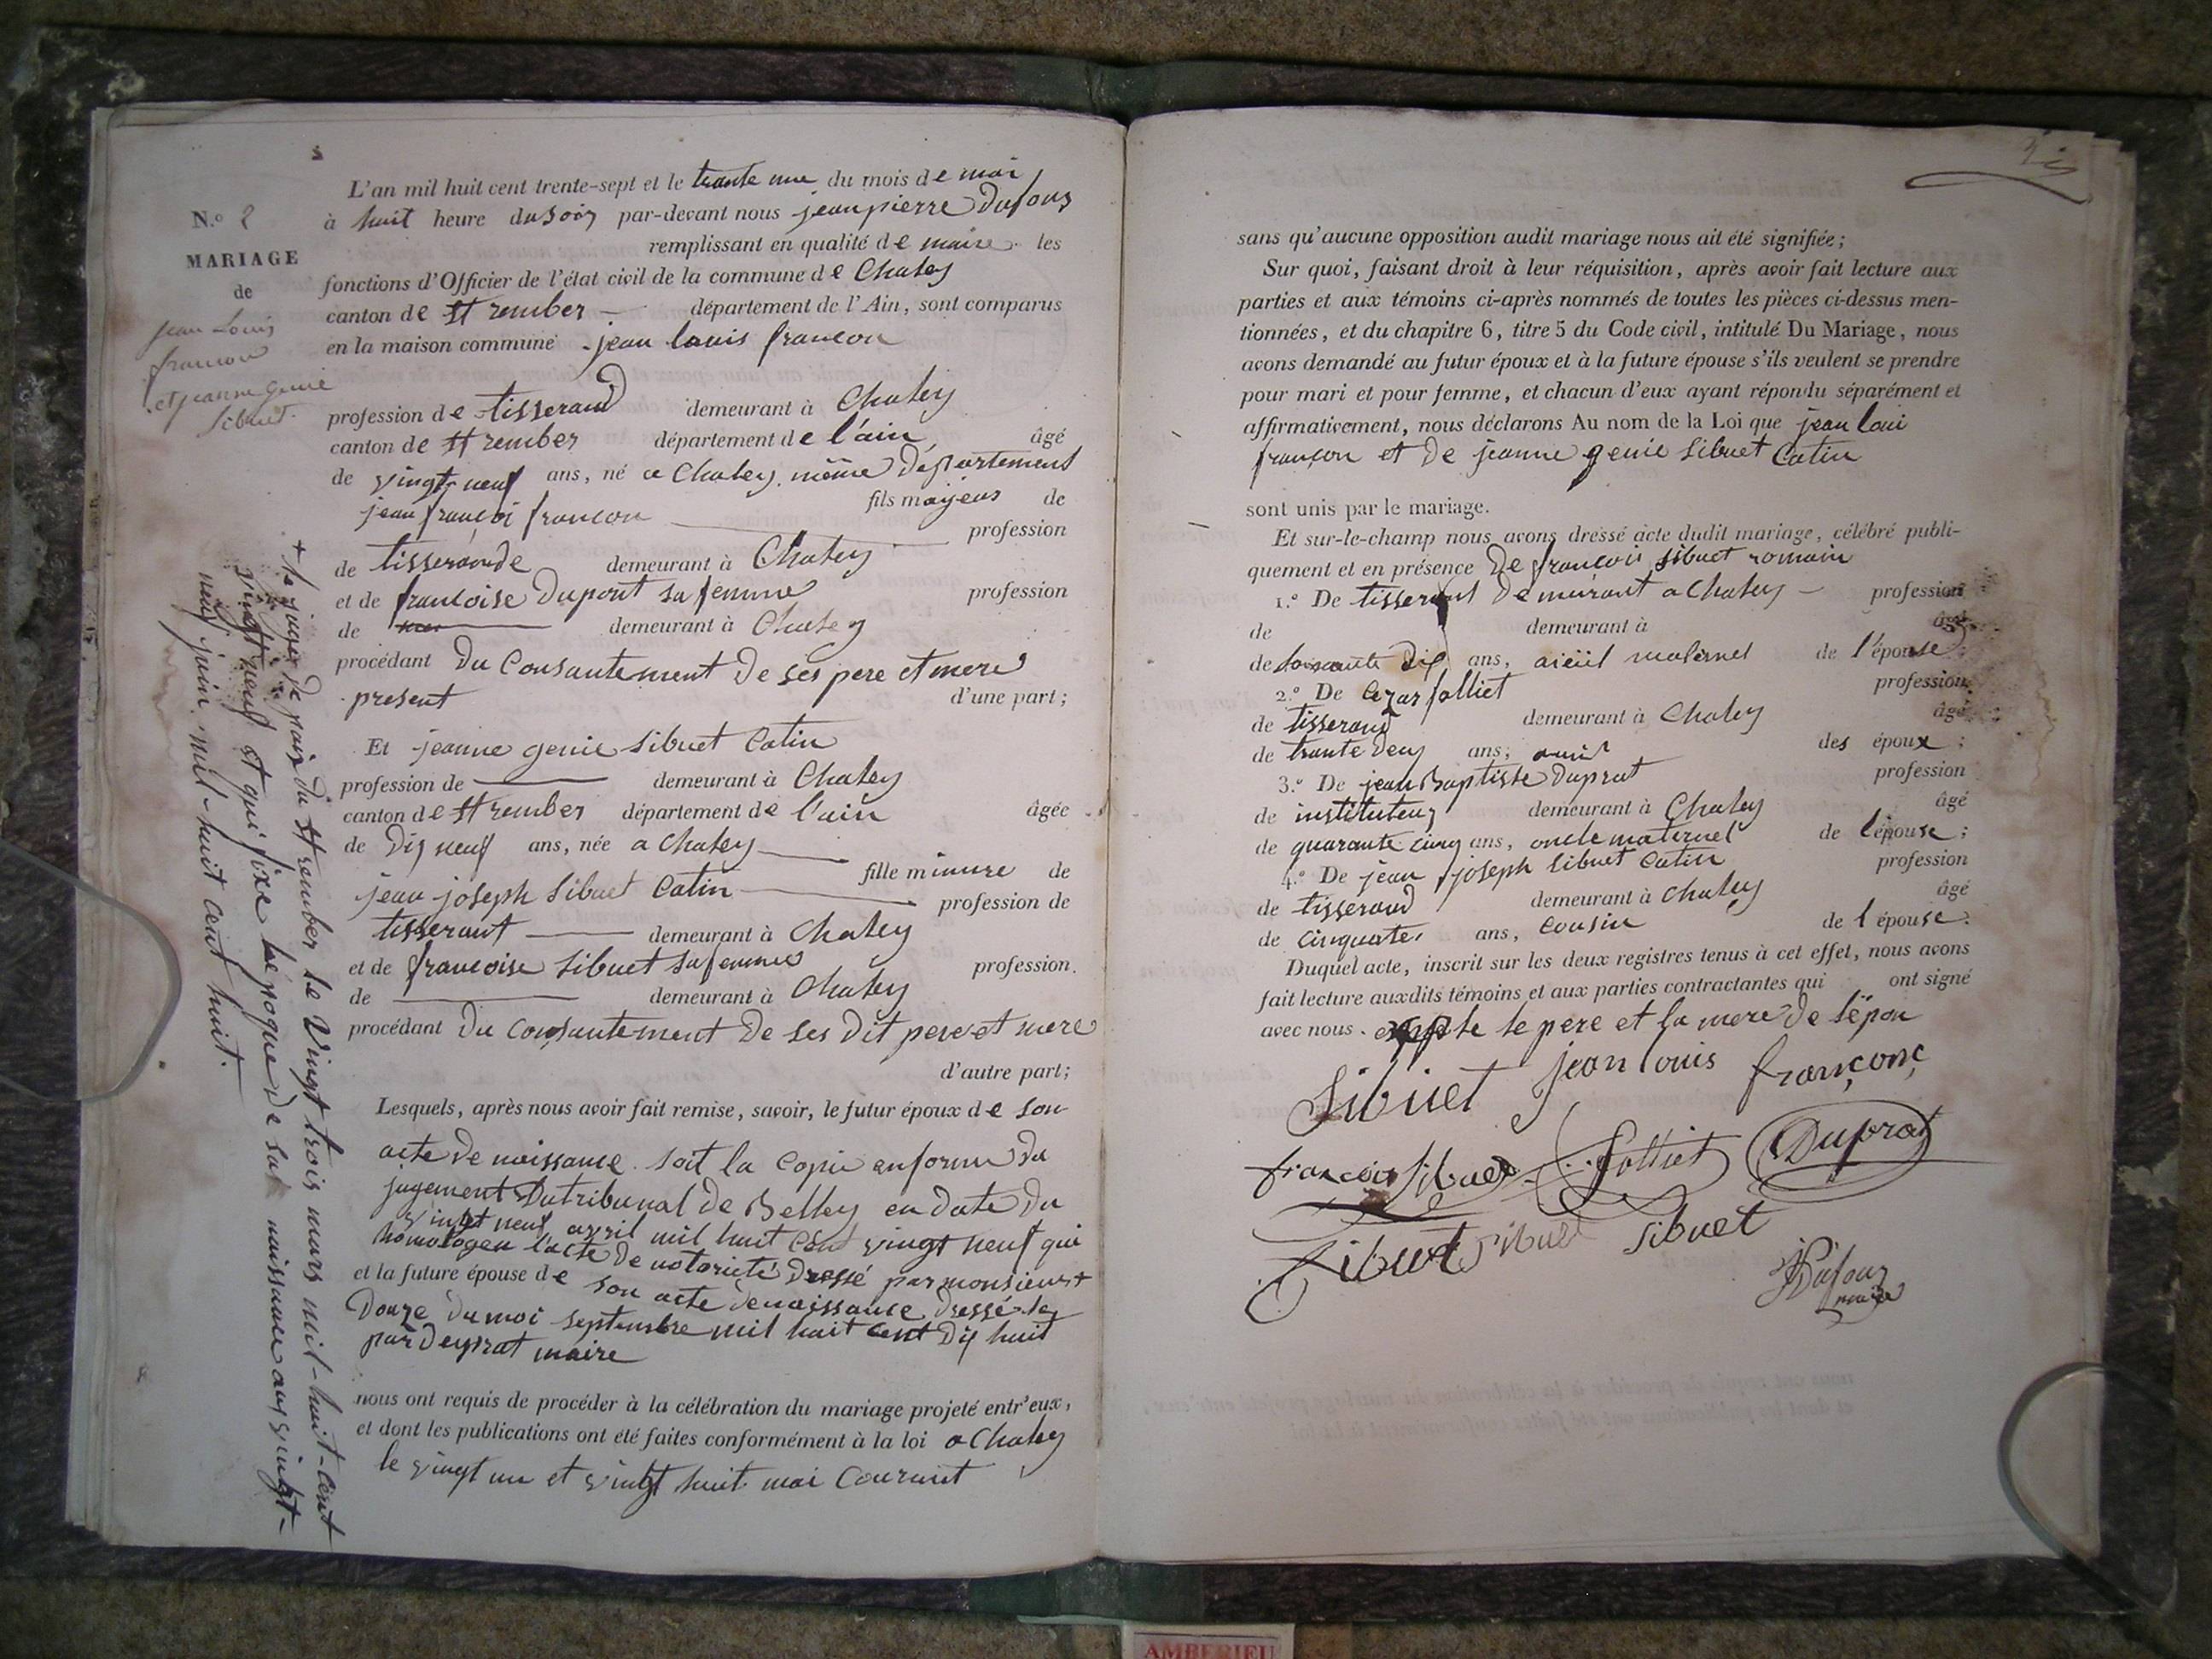 L'an mil huit cent trente-sept et le trante une du mois de mai
N.o 2
à huit heure du soir par-devant nous jean pierre Dufour
remplissant en qualité de maire les
MARIAGE
fonctions d'Officier de l'état civil de la commune de Chaley
de
canton de St rember — département de l'Ain, sont comparus
jean Louis
en la maison commune jean louis françon
françon
et jeanne genie
Sibuet
profession de tisserand demeurant à Chaley
canton de St rember département de l'ain, âgé
de vingt neuf ans, né a Chaley même Département
fils majeur de
jean françoi françon
profession
de tisserande demeurant à Chaley
et de francoise Dupont sa femme profession
de demeurant à Chaley
procédant Du Consantement De ses pere et mere
present d'une part;
Et jeanne genie Sibuet Catin
profession de demeurant à Chaley
canton de St rember département de l'ain âgée
de Dix neuf ans, née a Chaley
fille mineure de
jean joseph Sibuet Catin
profession de
tisserant demeurant à Chaley
et de francoise Sibuet sa femme profession
de demeurant à Chaley
procédant Du Consantement De ses Dit pere et mere
d'autre part;
Lesquels, après nous avoir fait remise, savoir, le futur époux de son
acte De naissance soit la Copie en forme Du
jugement Du tribunal De Belley en Date Du
vingt neuf avril mil huit Cent vingt neuf qui
homologeu l'acte De notorieté Dressé par monsieur +
et la future épouse de son acte de naissance Dressé le
Douze Du moi septembre mil huit Cent Dix huit
par Deyprat maire
nous ont requis de procéder à la célébration du mariage projeté entr'eux,
et dont les publications ont été faites conformément à la loi a Chaley
le vingt un et vingt huit mai Courant
+ le juge De paix du St rember le Vingt trois mars mil-huit-cent
vingt neuf et qui fixe l'époque De sa naissance au vingt-
neuf juin mil-huit cent huit.
sans qu'aucune opposition audit mariage nous ait été signifiée;
Sur quoi, faisant droit à leur réquisition, après avoir fait lecture aux
parties et aux témoins ci-après nommés de toutes les pièces ci-dessus men-
tionnées, et du chapitre 6, titre 5 du Code civil, intitulé Du Mariage, nous
avons demandé au futur époux et à la future épouse s'ils veulent se prendre
pour mari et pour femme, et chacun d'eux ayant répondu séparément et
affirmativement, nous déclarons Au nom de la Loi que jean loui
françon et De jeanne genie Sibuet Catin
sont unis par le mariage.
Et sur-le-champ nous avons dressé acte dudit mariage, célébré publi-
quement et en présence De françois Sibuet romain
1.o De tisserant Demeurant a Chaley — profession
de demeurant à âgé
de soixante Dix ans, aieüil maternel de l'épouse;
2.o De Cezar folliet profession
de tisserand demeurant à Chaley âgé
de trante Deux ans, ami des époux;
3.o De jean Baptiste Duprat profession
de instituteur demeurant à Chaley âgé
de quarante cinq ans, oncle maternel de lépouse;
4.o De jean joseph Sibuet Catin profession
de tisserand demeurant à Chaley âgé
de cinquante ans, Cousin de l épouse.
Duquel acte, inscrit sur les deux registres tenus à cet effet, nous avons
fait lecture auxdits témoins et aux parties contractantes qui ont signé
avec nous. le pere et la mere De lépou
Sibuet jean louis françonç
françois Sibuet folliet Duprat
Sibuet Sibuet Sibuet
JPDufour
maire
AMBERIEU